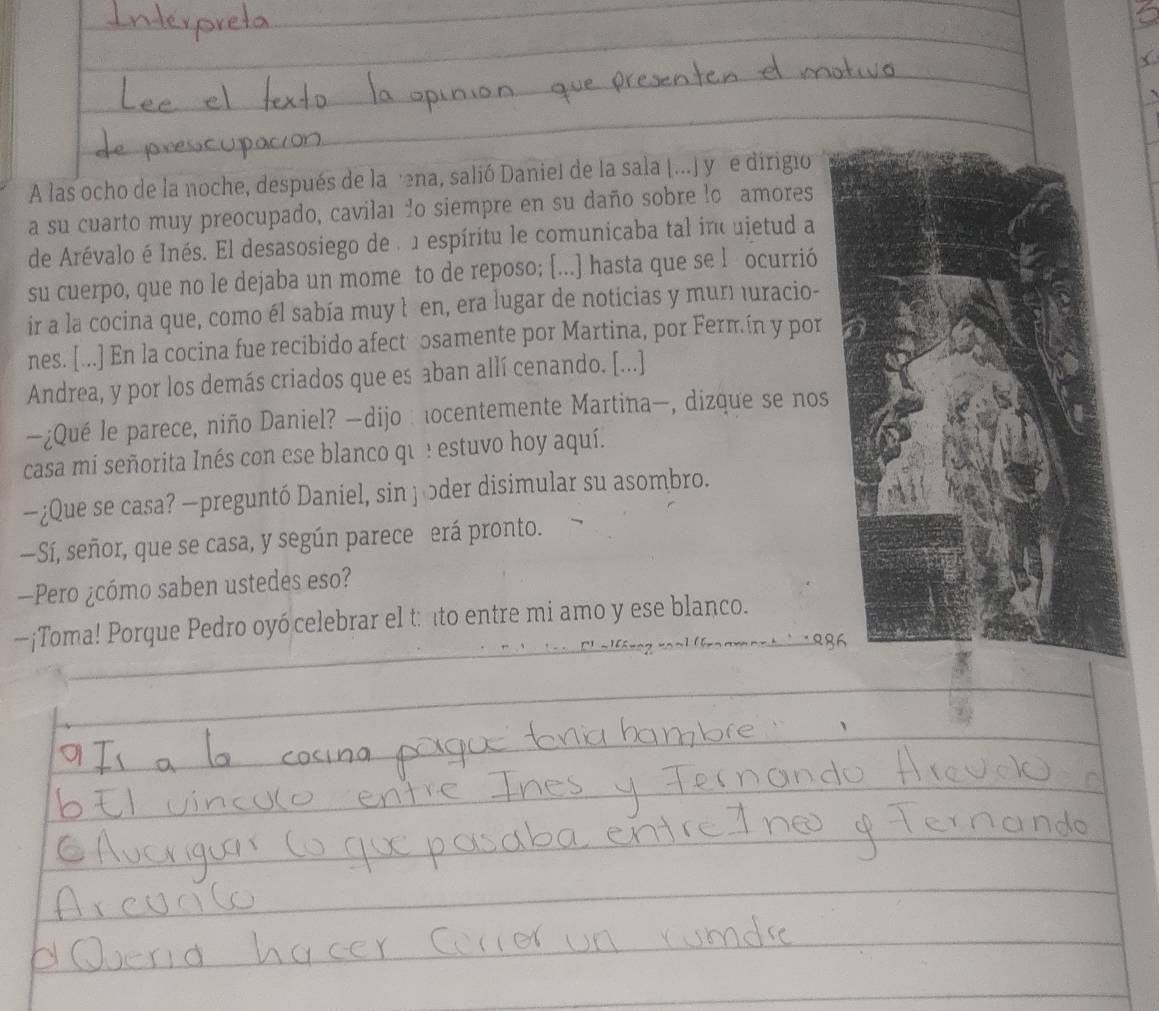 Interpreta
Lee el texto la opinion que presenten el motivo
de preocupacion
A las ocho de la noche, después de la ena, salió Daniel de la sala [...] y e dirigió
a su cuarto muy preocupado, cavilan do siempre en su daño sobre lo amores
de Arévalo é Inés. El desasosiego de u espíritu le comunicaba tal in uietud a
su cuerpo, que no le dejaba un mome to de reposo; [...] hasta que se l ocurrió
ir a la cocina que, como él sabía muy b en, era lugar de noticias y mur uracio-
nes. [...] En la cocina fue recibido afect osamente por Martina, por Fermín y por
Andrea, y por los demás criados que es aban allí cenando. [...]
—¿Qué le parece, niño Daniel? —dijo nocentemente Martina—, dizque se nos
casa mi señorita Inés con ese blanco que estuvo hoy aquí.
—¿Que se casa? —preguntó Daniel, sin poder disimular su asombro.
—Sí, señor, que se casa, y según parece erá pronto.
—Pero ¿cómo saben ustedes eso?
—¡Toma! Porque Pedro oyó celebrar el t ato entre mi amo y ese blanco.
a Ir a la cocina paque tenia hambre
b El vinculo entre Ines y Fernando Arevalo
c Averiguar lo que pasaba entre Ines y Fernando
Arevalo
d Queria hacer correr un rumdre